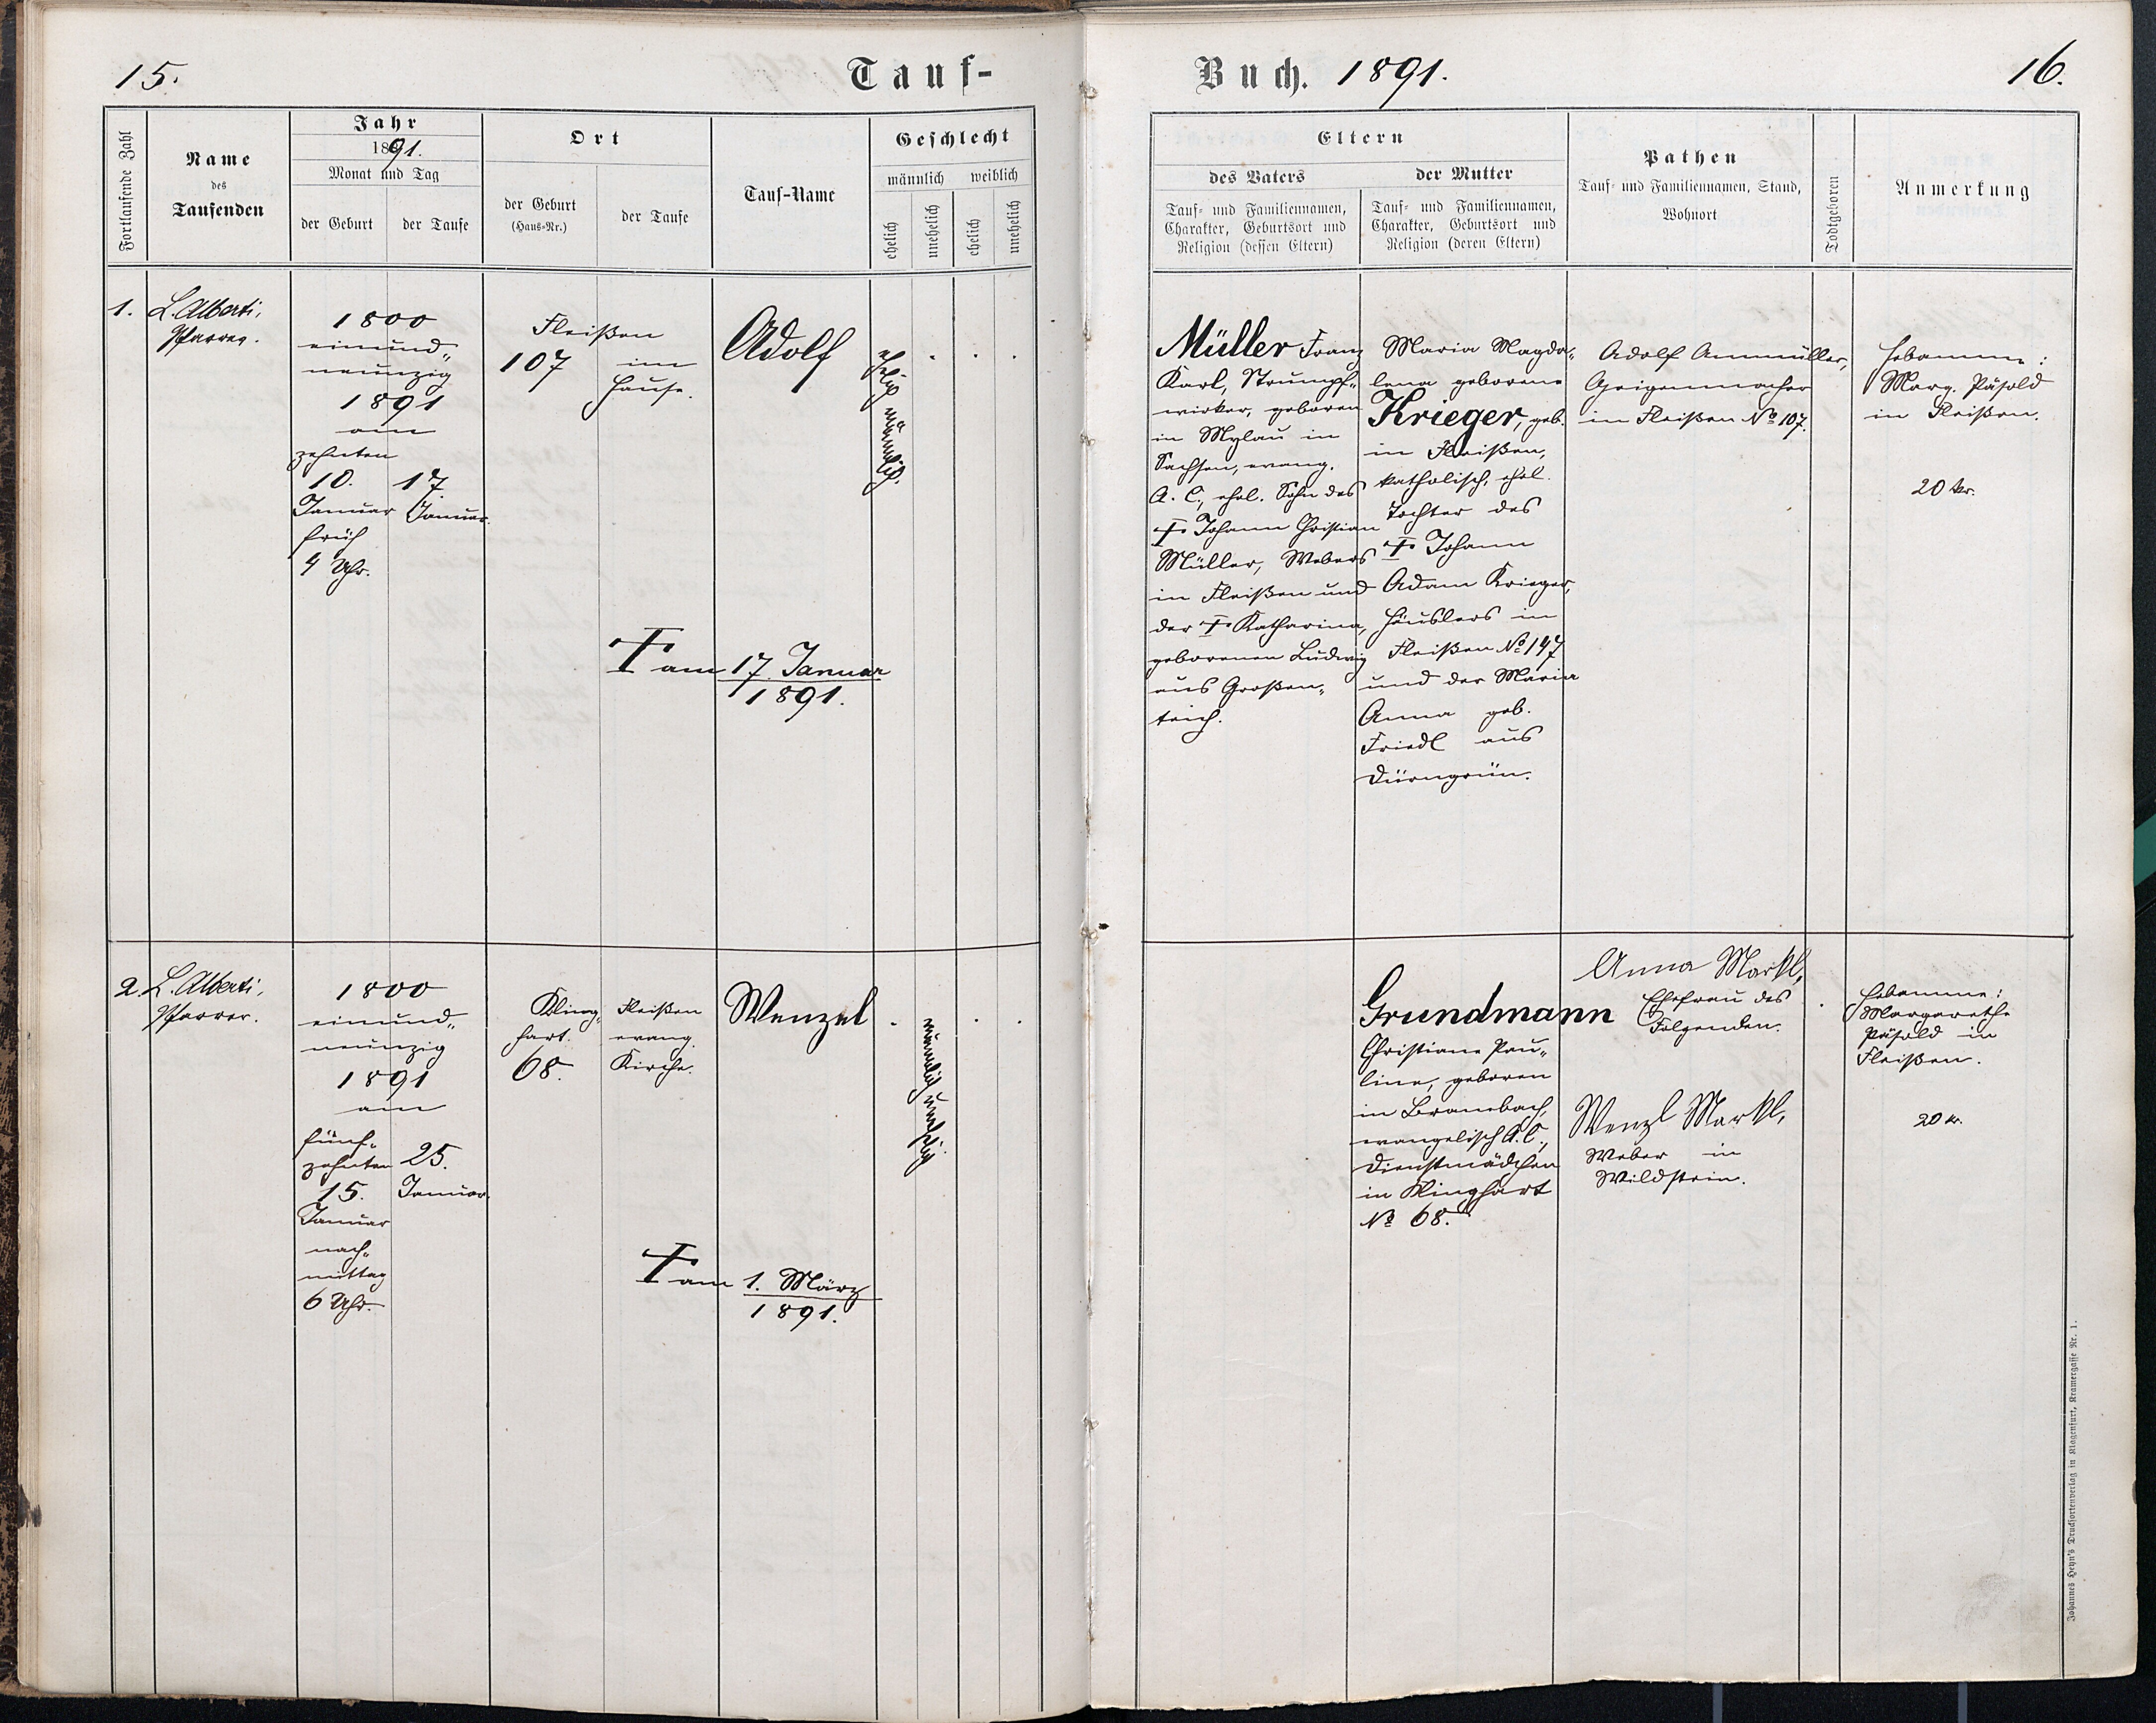 15.
Tauf-
Fortlaufende Zahl
Name
des
Taufenden
Jahr
1891.
Monat und Tag
der Geburt
der Taufe
Ort
der Geburt
(Haus-Nr.)
der Taufe
Tauf-Name
Geschlecht
männlich
weiblich
ehelich
unehelich
ehelich
unehelich
1.
L. Alberti,
Pfarrer.
1800
einund„
neunzig
1891
am
zehnten
10.
Januar
früh
4 Uhr.
17.
Januar.
Fleißen
107
im
Hause.
Adolf
ehelich männlich.
† am 17. Januar
1891.
2.
L. Alberti,
Pfarrer.
1800
einund„
neunzig
1891
am
fünf„
zehnten
15.
Januar
nach„
mittag
6 Uhr.
25.
Januar.
Kling„
hart.
68.
Fleißen
evang.
Kirche.
Wenzel
männlich unehelich
† am 1. März
1891.
Buch. 1891.
16.
Eltern
des Vaters
Tauf- und Familiennamen,
Charakter, Geburtsort und
Religion (dessen Eltern)
der Mutter
Tauf- und Familiennamen,
Charakter, Geburtsort und
Religion (deren Eltern)
Pathen
Tauf- und Familiennamen, Stand,
Wohnort
Todtgeboren
Anmerkung
Müller Franz
Karl, Strumpf„
wirker, geboren
in Mylau in
Sachsen, evang.
A. C., ehel. Sohn des
† Johann Christian
Müller, Webers
in Fleißen und
der † Katharina,
geborenen Ludwig
aus Großen„
teich.
Maria Magda„
lena geborene
Krieger, geb.
in Fleißen,
katholisch, ehel.
Tochter des
† Johann
Adam Krieger,
Häuslers in
Fleißen No 147
und der Maria
Anna geb.
Friedl aus
Dürngrün.
Adolf Ammüller,
Geigenmacher
in Fleißen No 107.
Hebamme:
Marg. Päsold
in Fleißen.
20 kr.
Grundmann
Christiane Pau„
line, geboren
in Brambach,
evangelisch A. C.,
Dienstmädchen
in Klinghart
No 68.
Anna Markl,
Ehefrau des
Folgenden.
Wenzl Markl,
Weber in
Wildstein.
Hebamme:
Margarethe
Päsold in
Fleißen.
20 kr.
Johannes Heyn's Drucksortenverlag in Klagenfurt, Kramergasse Nr. 1.